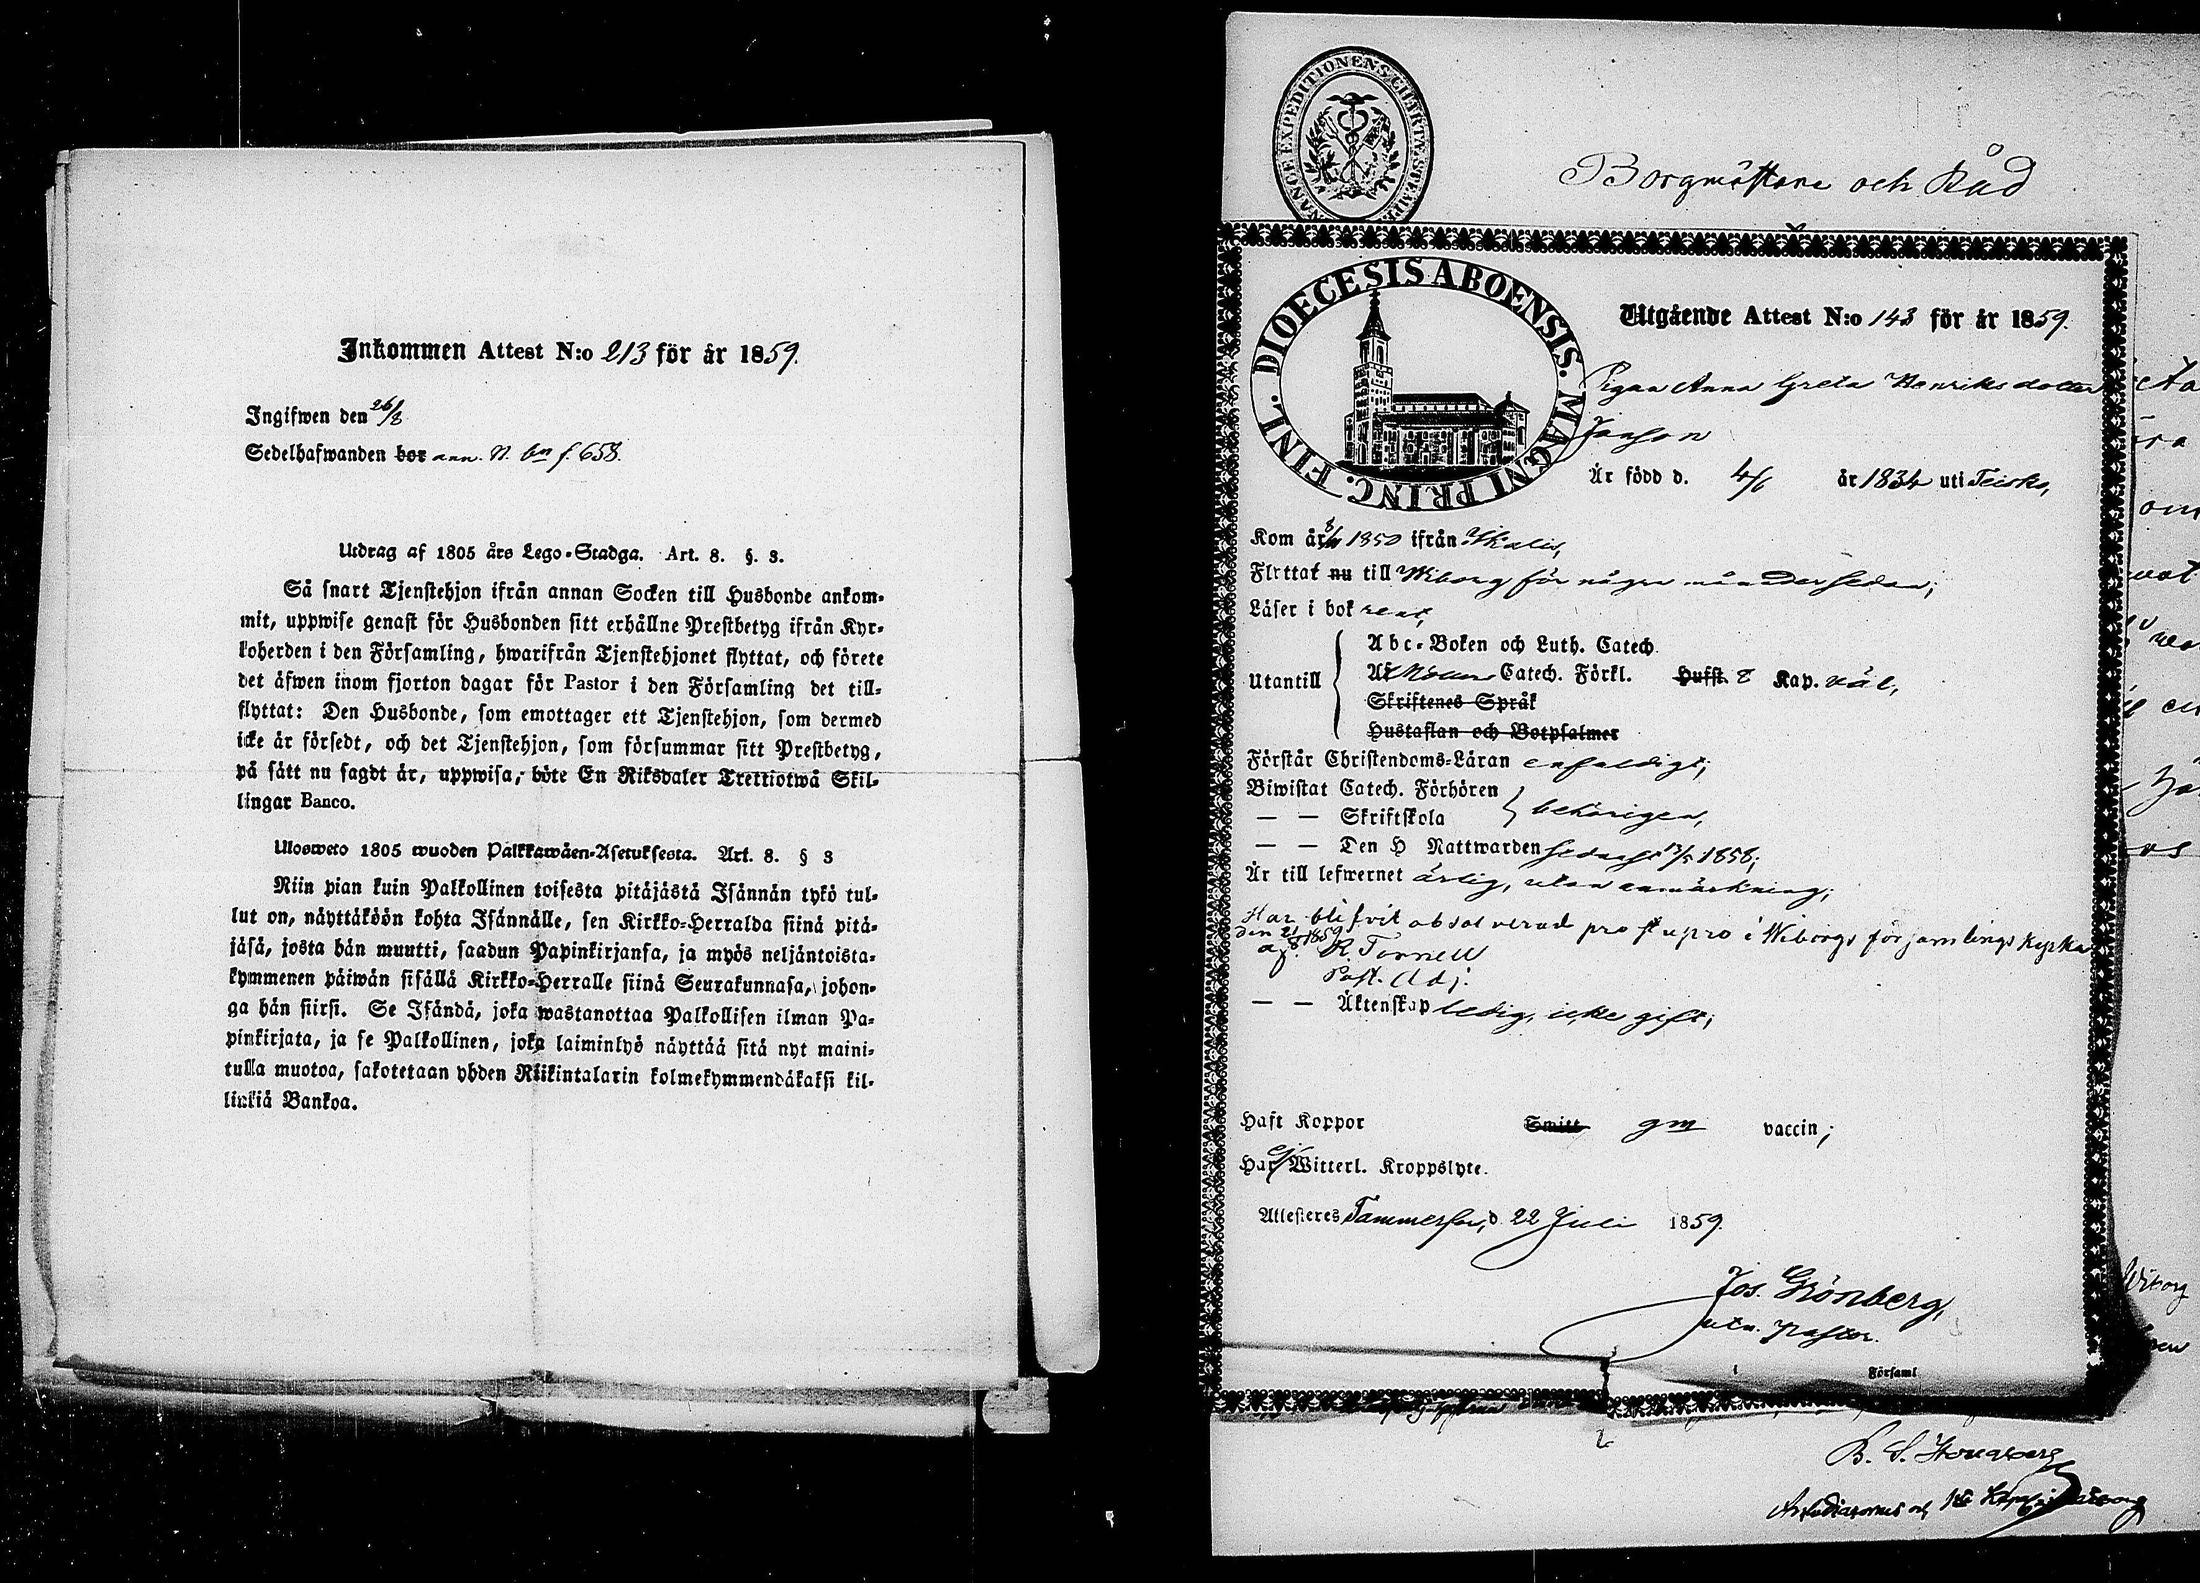 Inkommen Attest N:o 213 för år 1859.
Ingifwen den 26/8
Sedelhafwanden bor ann. N. bn f. 658.
Utdrag af 1805 års Lego-Stadga. Art. 8. §. 3.
Så snart Tjenstehjon ifrån annan Socken till Husbonde ankom-
mit, uppwise genast för Husbonden sitt erhållne Prestbetyg ifrån Kyr-
koherden i den Församling, hwarifrån Tjenstehjonet flyttat, och förete
det äfwen inom fjorton dagar för Pastor i den Församling det till-
flyttat: Den Husbonde, som emottager ett Tjenstehjon, som dermed
icke är försedt, och det Tjenstehjon, som försummar sitt Prestbetyg,
på sätt nu sagdt är, uppwisa, böte En Riksdaler Trettiotwå Skil-
lingar Banco.
Ulosweto 1805 wuoden Palkkawäen-Asetuksesta. Art. 8. § 3
Niin pian kuin Palkollinen toisesta pitäjästä Isännän tykö tul-
lut on, näyttäköön kohta Isännälle, sen Kirkko-Herralda siinä pitä-
jäsä, josta hän muutti, saadun Papinkirjansa, ja myös neljäntoista-
kymmenen päiwän sisällä Kirkko-Herralle siinä Seurakunnasa, johon-
ga hän siirsi. Se Isändä, joka wastanottaa Palkollisen ilman Pa-
pinkirjata, ja se Palkollinen, joka laiminlyö näyttää sitä nyt maini-
tulla muotoa, sakotetaan yhden Riikintalarin kolmekymmendäkaksi kil-
linkiä Bankoa.
Borgmästare och Råd
DIOECESIS ABOENSIS. MAGNI PRINC. FINL.
Utgående Attest N:o 143 för år 1859.
Pigan Anna Greta Henriksdotter
Janson
Är född d. 4/6 år 1834 uti Teisko,
Kom år 1850 ifrån Ikalis,
Flyttat nu till Wiborg för några månader sedan;
Läser i bok rent,
Utantill
Abc-Boken och Luth. Catech.
Catech. Förkl. Hufst. 8 Kap. väl,
Skriftenes Språk
Hustaflan och Botpsalmer
Förstår Christendoms-Läran enfaldigt;
Biwistat Catech. Förhören
— — Skriftskola behörigen,
— — Den H Nattwarden sednast 13/5 1858;
Är till lefwernet ärlig, utan anmärkning;
Har blifvit absolverad pro stupro i Wiborgs församlings kyrka
den 21/8 1859
af. R. Tornell
Past. Adj.
— — Äktenskap ledig, icke gift;
Haft Koppor Smitt gm vaccin;
Har ej Witterl. Kroppslyte.
Attesteres Tammerfors, d. 22 Juli 1859.
Jos. Grönberg,
utn. Pastor.
Församl